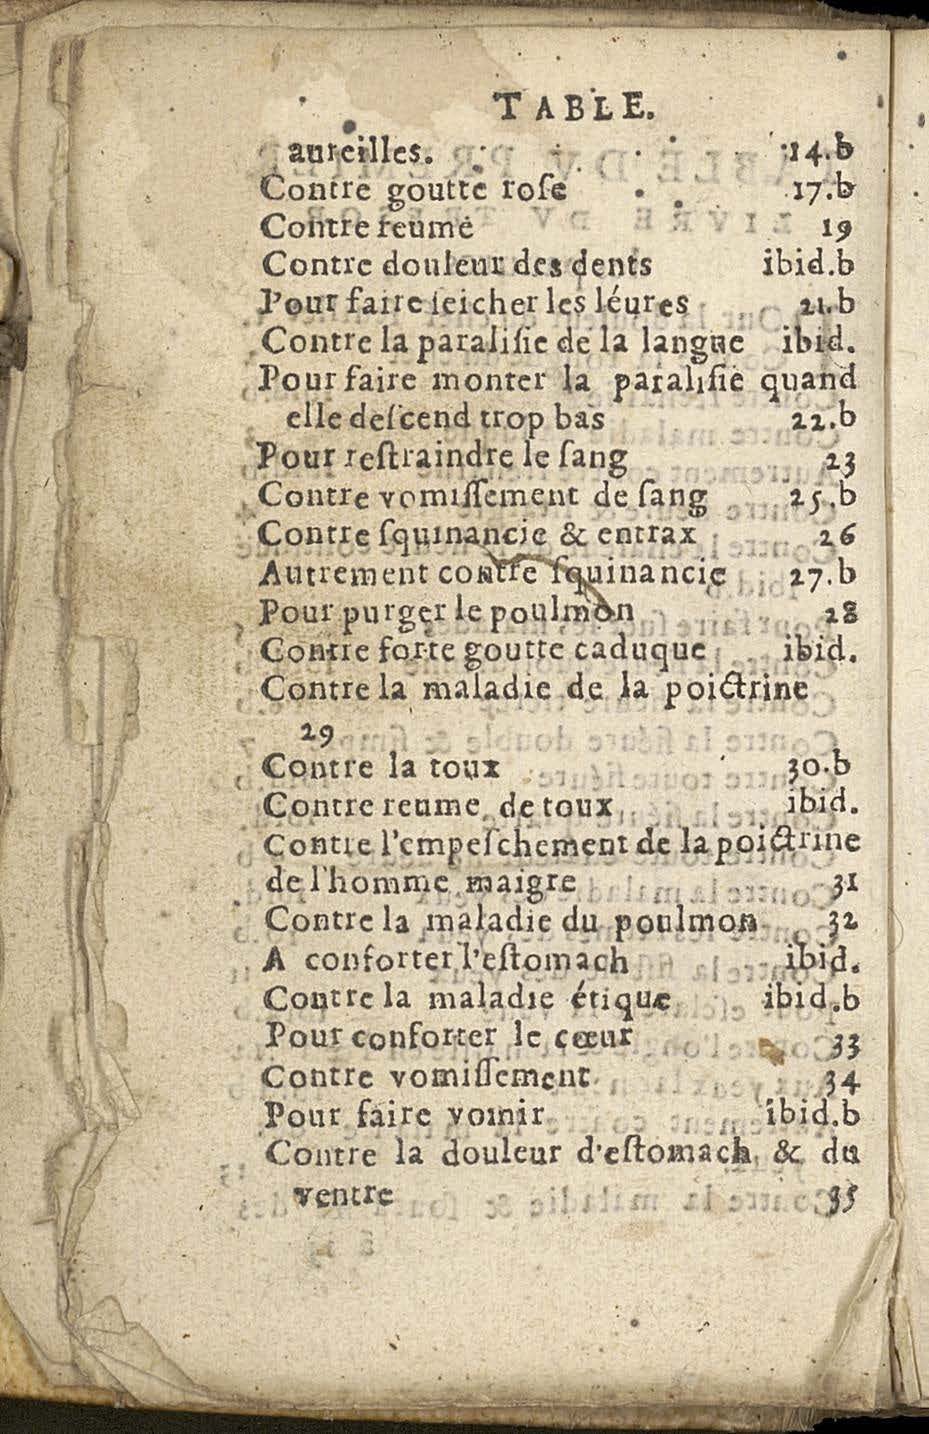 TABLE.
aureilles. 14.b
Contre goutte roſe 17.b
Contre reume 19
Contre douleur des dents ibid.b
Pour faire ſeicher les léures 21.b
Contre la paraliſie de la langue ibid.
Pour faire monter la paraliſie quand
elle deſcend trop bas 22.b
Pour reſtraindre le ſang 23
Contre vomiſſement de ſang 25.b
Contre ſquinancie & entrax 26
Autrement contre ſquinancie 27.b
Pour purger le poulmon 28
Contre forte goutte caduque ibid.
Contre la maladie de la poictrine
29
Contre la toux 30.b
Contre reume de toux ibid.
Contre l'empeſchement de la poictrine
de l'homme maigre 31
Contre la maladie du poulmon 32
A conforter l'eſtomach ibid.
Contre la maladie étique ibid.b
Pour conforter le cœur 33
Contre vomiſſement 34
Pour faire vomir ibid.b
Contre la douleur d'eſtomach & du
ventre 35